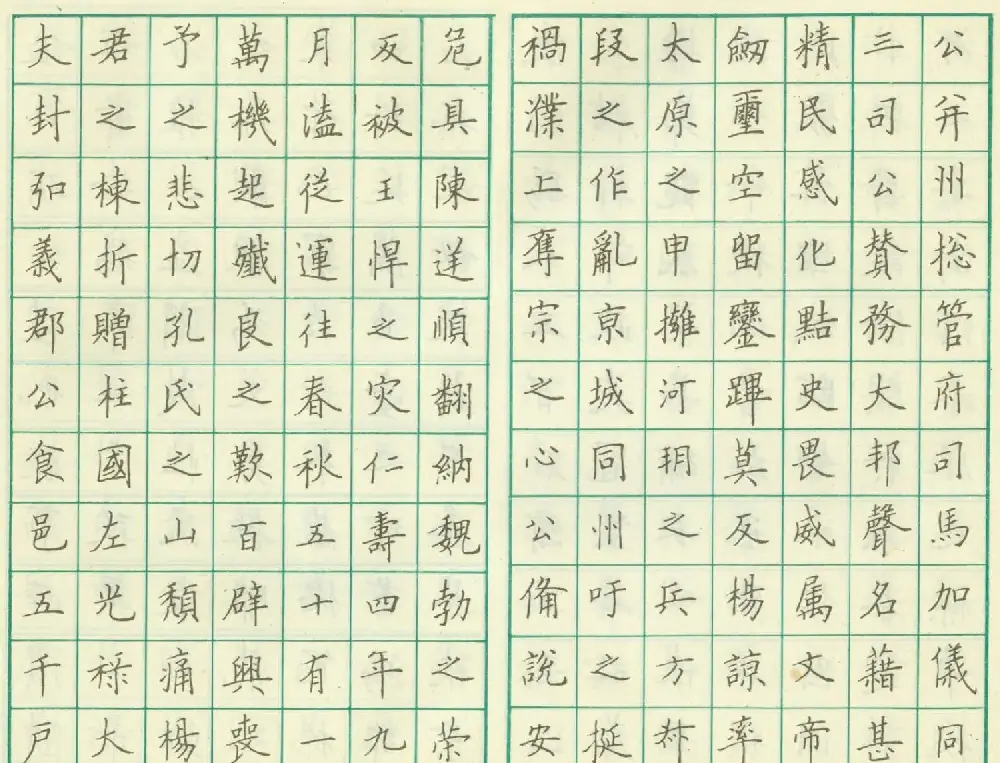 公并州総管府司馬加儀同
三司公贊務大邦聲名藉甚
精民感化黠史畏威属文帝
劒璽空留鑾蹕莫反楊諒率
太原之甲擁河朔之兵方叔
段之作亂京城同州吁之挺
禍濮上奪宗之心公備說安
危具陳逆順翻納魏勃之荣
反被王悍之灾仁壽四年九
月溘從運往春秋五十有一
萬機起殲良之歎百辟興喪
予之悲切孔氏之山頹痛楊
君之棟折贈柱國左光祿大
夫封弘義郡公食邑五千戶